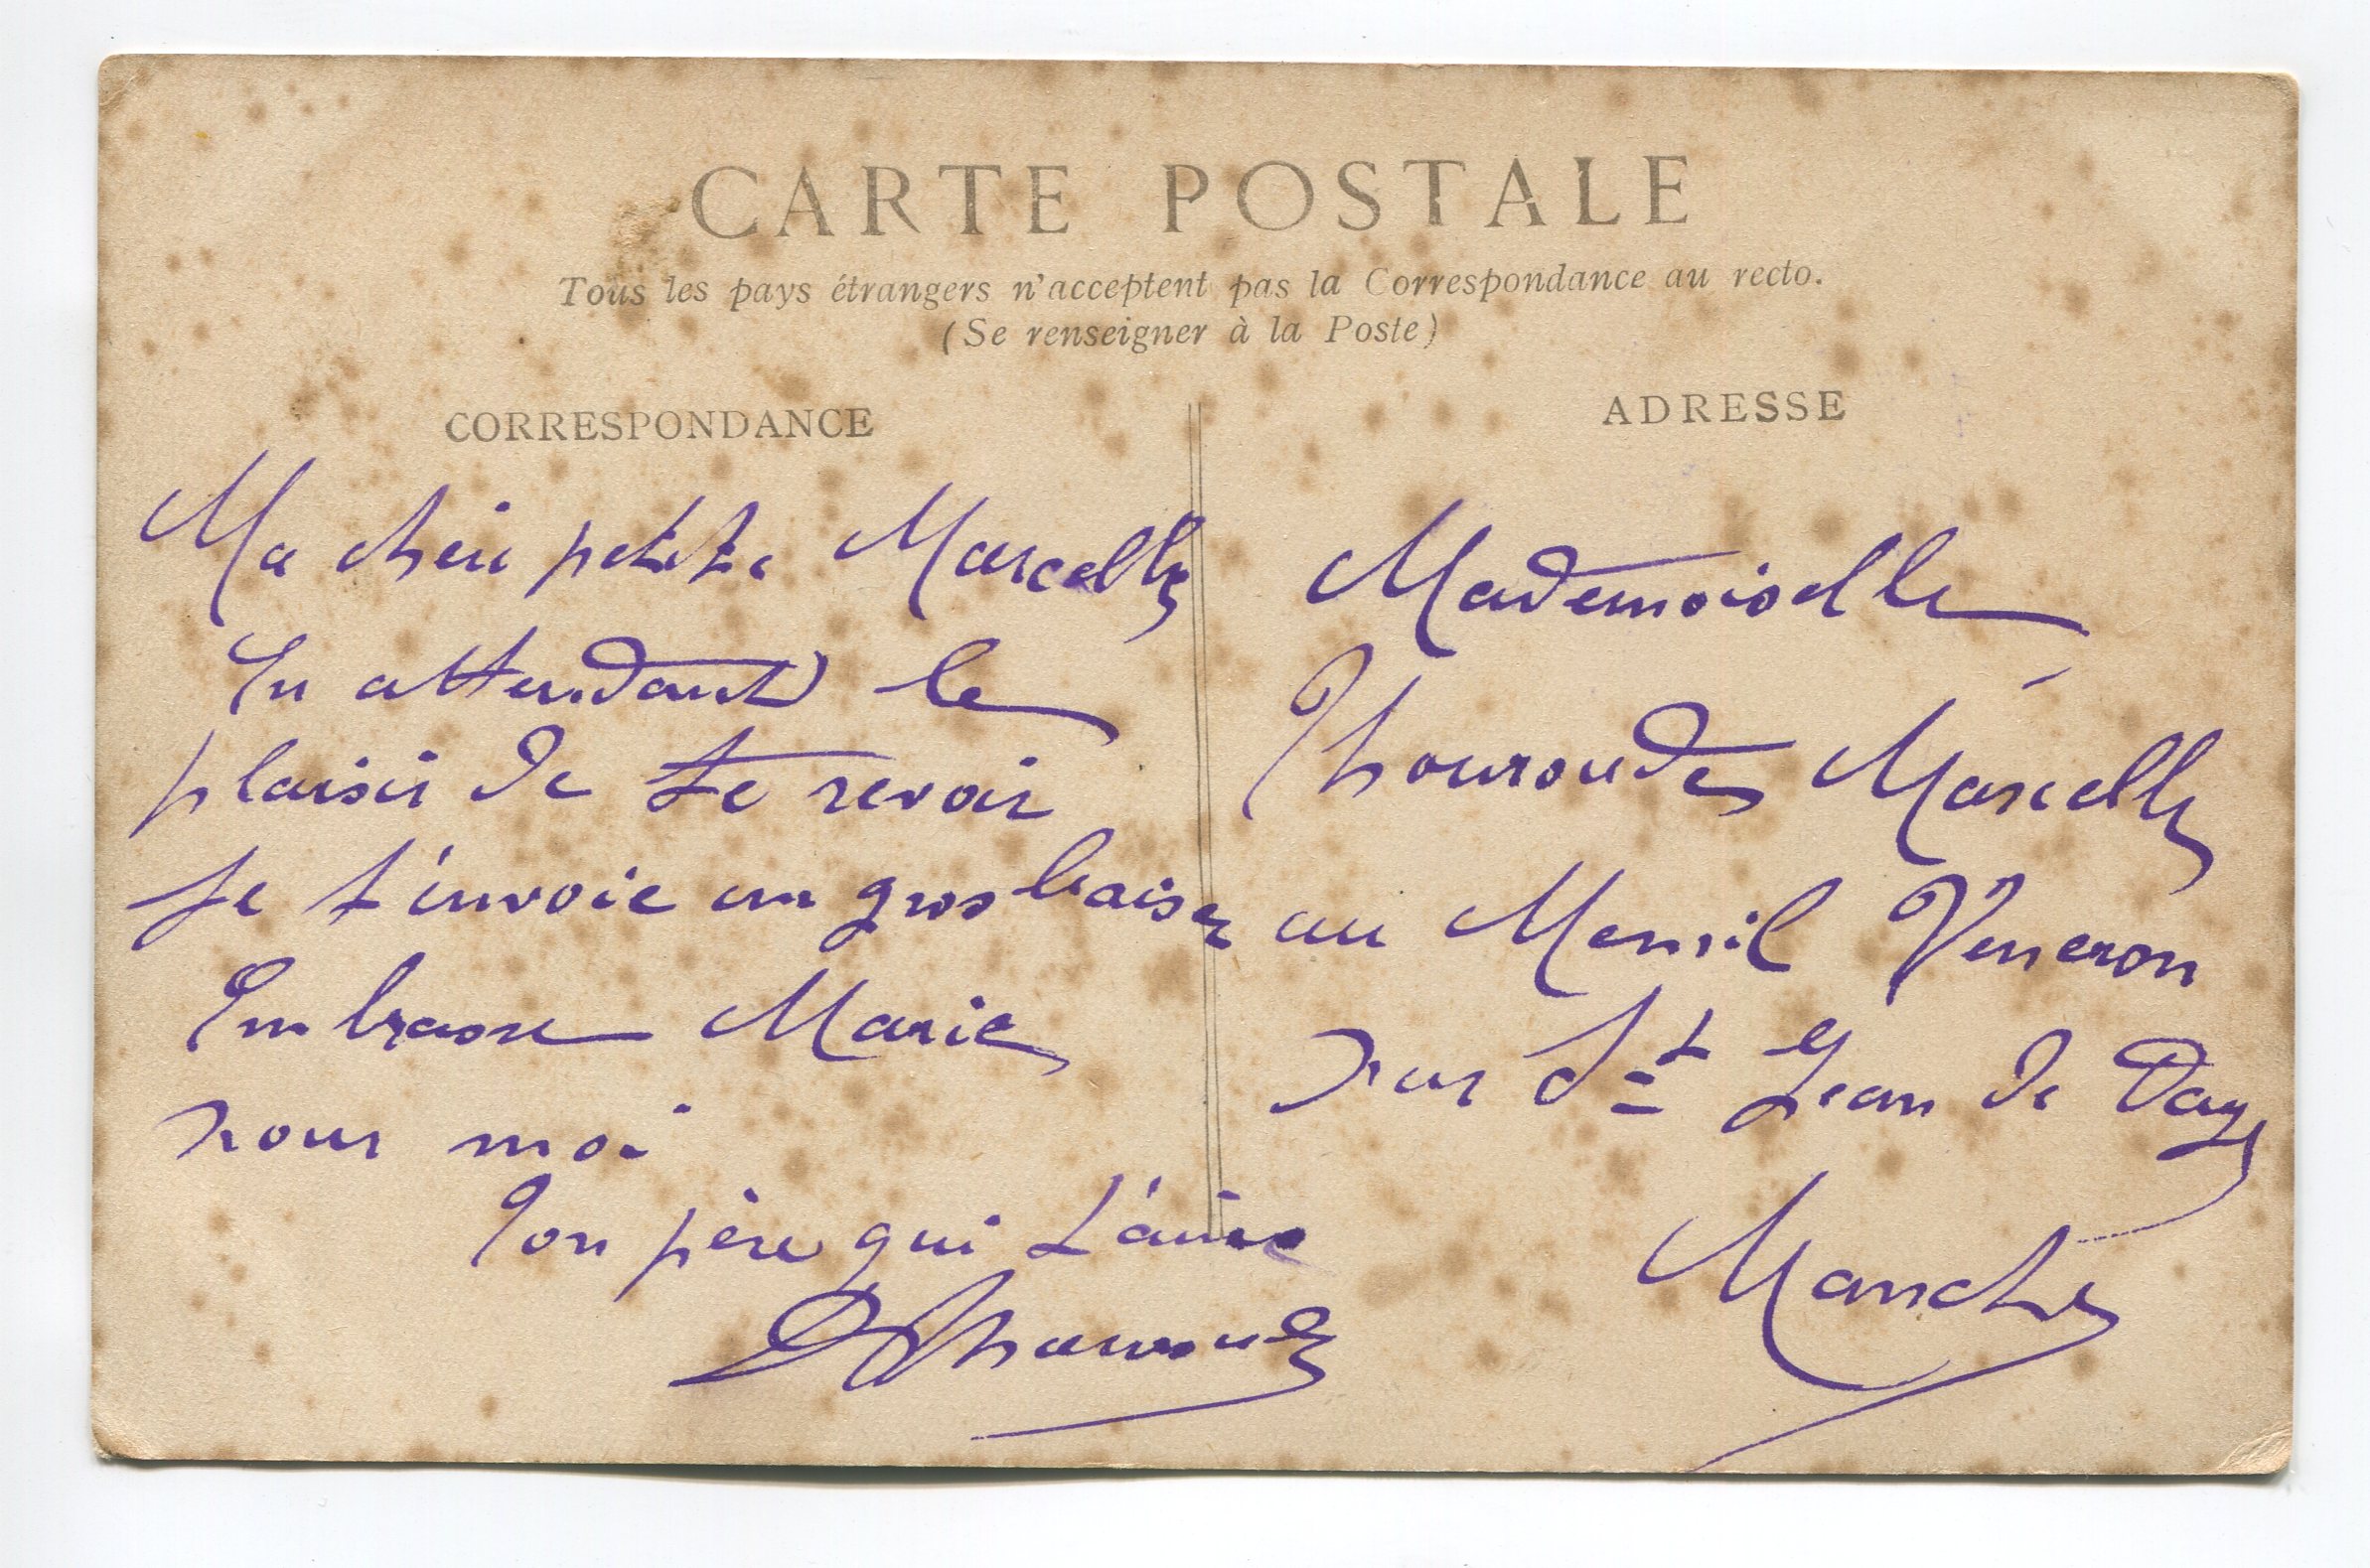 CARTE POSTALE
Tous les pays étrangers n'acceptent pas la Correspondance au recto.
(Se renseigner à la Poste)
CORRESPONDANCE
Ma chérie petite Marcelle
En attendant le
plaisir de te revoir
Je t'envoie un gros baiser
Embrasse Marie
pour moi
Ton père qui t'aime
Thouroude
ADRESSE
Mademoiselle
Thouroude Marcelle
au Mesnil Veneron
par St Jean de Daye
Manche